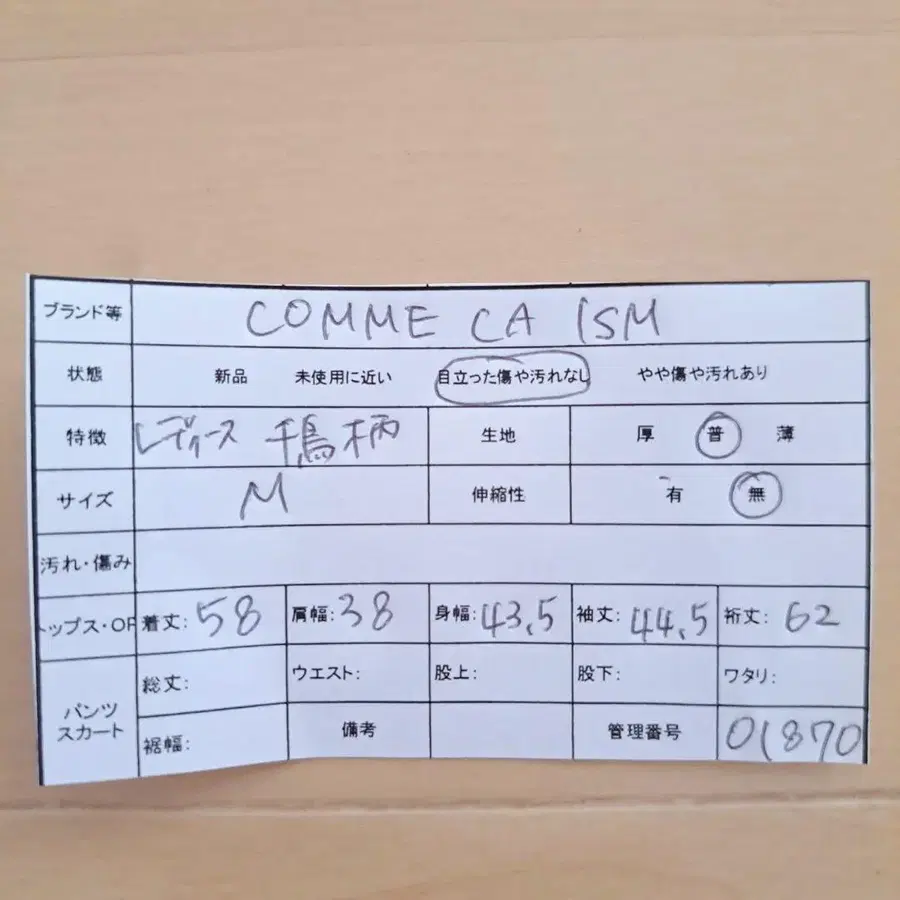 ブランド等 COMME CA ISM
状態 新品 未使用に近い 目立った傷や汚れなし やや傷や汚れあり
特徴 レディース 千鳥柄 生地 厚 普 薄
サイズ M 伸縮性 有 無
汚れ・傷み
トップス・OP 着丈: 58 肩幅: 38 身幅: 43.5 袖丈: 44.5 裄丈: 62
パンツ
スカート
総丈: ウエスト: 股上: 股下: ワタリ:
裾幅: 備考 管理番号 01870